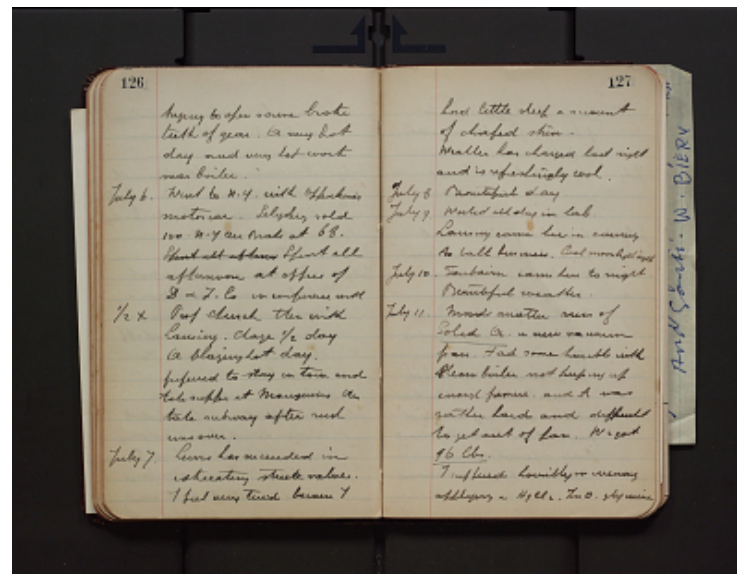 126
trying to open some broke
teeth of gear. A very hot
day and very hot work
near boiler.
July 6. Went to N.Y. with
motorcar. sold
100 N.Y. at 68.
Spent all
afternoon at office of
D & F. Co in conference with
1/2 x Prof Church then with
Lansing. Charge 1/2 day
A blazing hot day.
preferred to stay in town and
take supper at
take subway after rush
was over.
July 7. has succeeded in
valves.
I feel very tired because I
127
had little sleep account
of chafed skin.
Weather has changed last night
and is refreshingly cool.
July 8 Beautiful day
July 9. Worked all day in lab.
Lansing came here in evening
to talk business. Cool moonlight night
July 10. Fairbairn came here to night
Beautiful weather.
July 11. Made another run of
Solid A. in new vacuum
pan. Had some trouble with
steam boiler not keeping up
enough pressure. and it was
rather hard and difficult
to get out of pan. We got
96 lbs.
I suffered horribly in evening
applying HgCl2. ZnO. glycerine
W. BIERV